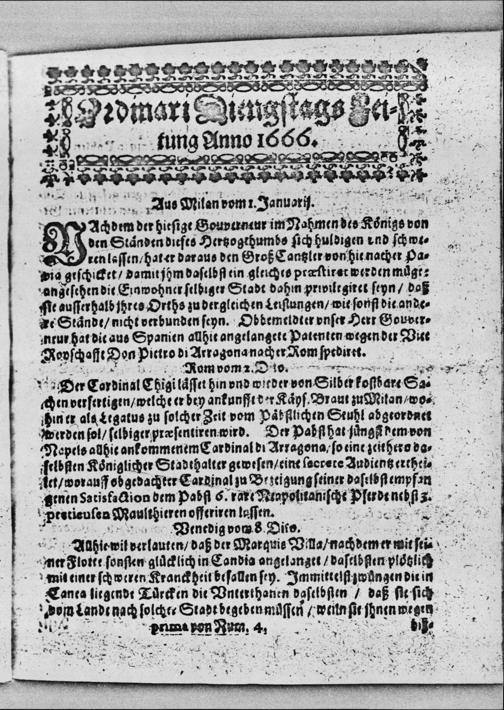 Ordinari Diengstags Zei-
tung Anno 1666.
Aus Milan vom 1. Januarij.
NAchdem der hiesige Gouverneur im Nahmen des Königs von
den Ständen dieses Hertzogthumbs sich huldigen und schwe-
ren lassen / hat er daraus den Groß Cantzler von hie nacher Pa-
via geschicket / damit jhm daselbst ein gleiches præstiret werden müge:
angesehen die Einwohner selbiger Stadt dahin privilegiret seyn / daß
sie ausserhalb jhres Orths zu dergleichen Leistungen / wie sonst die ande-
re Stände / nicht verbunden seyn. Obbemeldter unser Herr Gouver-
neur hat die aus Spanien allhie angelangete Patenten wegen der Vice
Royschafft Don Pietro di Arragona nacher Rom spediret.
Rom vom 2. Dito.
Der Cardinal Chigi lässet hin und wieder von Silber kostbare Sa-
chen verfertigen / welche er bey ankunfft der Käys. Braut zu Milan / wo-
hin er als Legatus zu solcher Zeit vom Päbstlichen Stuhl abgeordnet
werden sol / selbiger præsentiren wird. Der Pabst hat jüngst dem von
Napels allhie ankommenem Cardinal di Arragona / so eine zeithero da-
selbsten Königlicher Stadthalter gewesen / eine secrete Audientz erthei-
let / worauff obgedachter Cardinal zu Bezeigung seiner daselbst empfan-
genen Satisfaction dem Pabst 6. rare Neapolitanische Pferde nebst 3.
pretieusen Maulthieren offeriren lassen.
Venedig vom 8. Dito.
Allhie wil verlauten / daß der Marquis Villa / nachdem er mit sei-
ner Flote sonsten glücklich in Candia angelanget / daselbsten plötzlich
mit einer schweren Kranckheit befallen sey. Immittelst zwüngen die in
Canea liegende Türcken die Unterthanen daselbsten / daß sie sich
vom Lande nach solcher Stadt begeben müssen / weiln sie jhnen wegen
prima von Num. 4. biß-